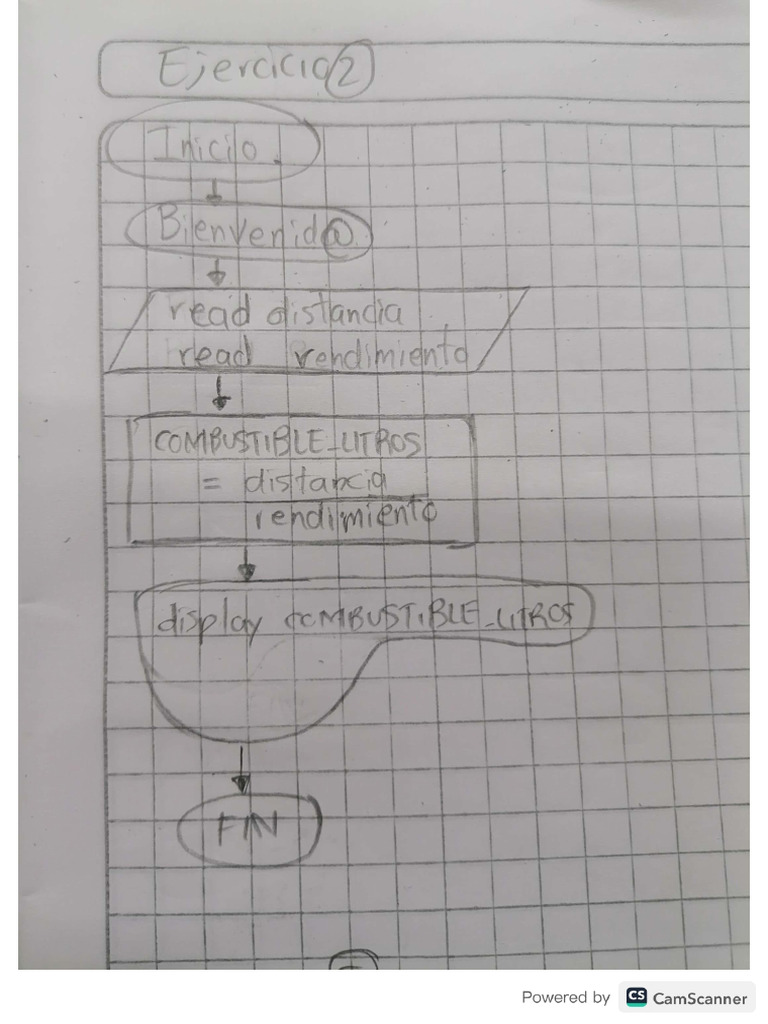 Ejercicio 2
Inicio.
Bienvenid@
read distancia
read rendimiento
COMBUSTIBLE_LITROS
= distancia
rendimiento
display COMBUSTIBLE_LITROS
FIN
Powered by CS CamScanner